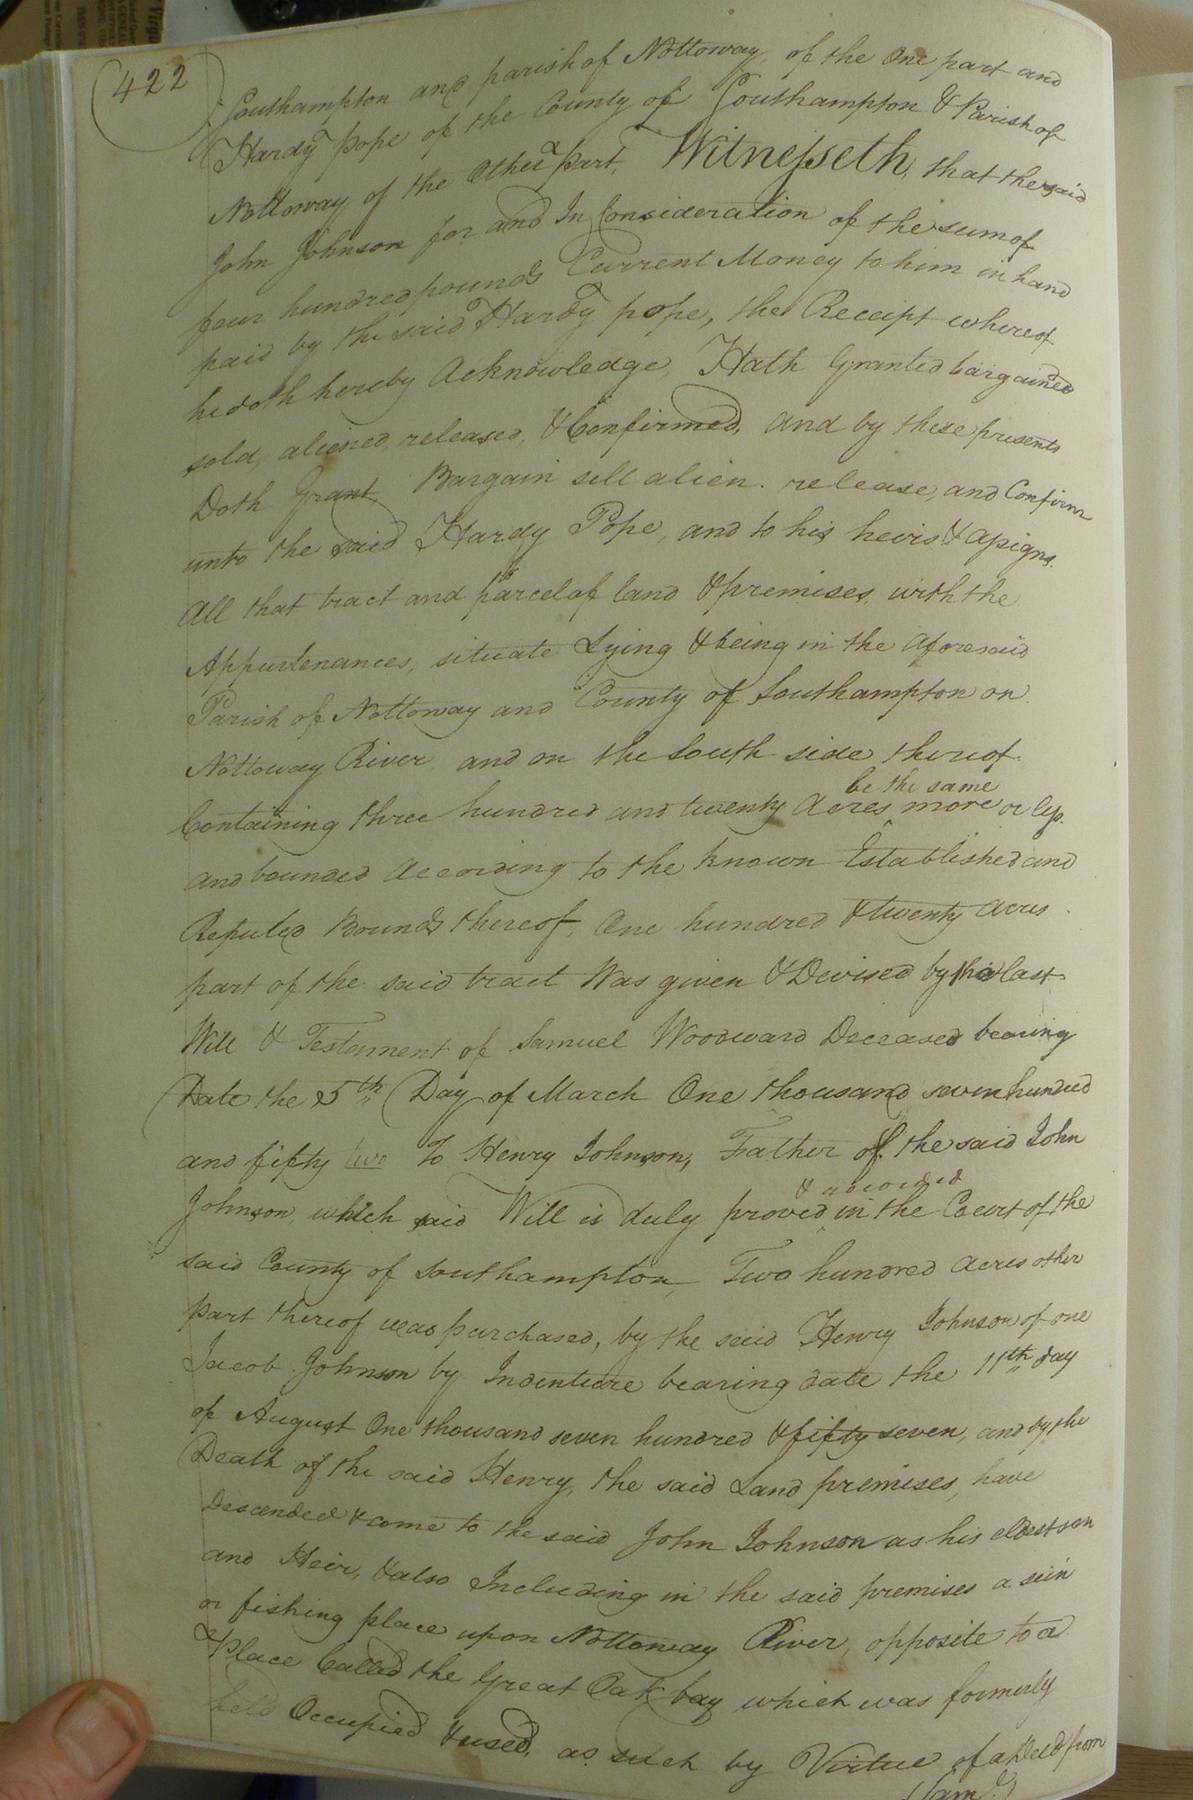 422
Southampton and parish of Nottoway, of the One part and
Hardy Pope of the County of Southampton & Parish of
Nottoway of the Other part, Witnesseth, that the said
John Johnson for and In Consideration of the sum of
four hundred pounds Current Money to him in hand
paid by the said Hardy pope, the Receipt whereof
he doth hereby Acknowledge, Hath Granted bargained
sold, aliened, released, & Confirmed, and by these presents
Doth Grant Bargain sell alien. release, and Confirm
unto the said Hardy Pope, and to his heirs & assigns.
All that tract and parcel of land & premises, with the
Appurtenances, situate Lying & being in the aforesaid
Parish of Nottoway and County of Southampton on
Nottoway River and on the South side thereof.
be the same
Containing three hundred and twenty Acres more or less.
and bounded According to the known Established and
Reputed Bounds thereof, One hundred & twenty acres
part of the said tract Was given & Devised by the last
Will & Testament of Samuel Woodward Deceased bearing
Date the 5th Day of March One thousand seven hundred
and fifty two To Henry Johnson, Father of the said John
& recorded
Johnson, which said Will is duly proved in the Court of the
said County of Southampton, Two hundred Acres other
part thereof was purchased, by the said Henry Johnson of one
Jacob Johnson by Indenture bearing date the 11th day
of August One thousand seven hundred & fifty seven, and by the
Death of the said Henry, the said Land premises, have
Descended & come to the said John Johnson as his eldest son
and Heir, & also Including in the said premises a sein
or fishing place upon Nottoway River, opposite to a
Place Called the Great Oak bay which was formerly
held Occupied & used, as such by Virtue of a Deed from
Sam.l